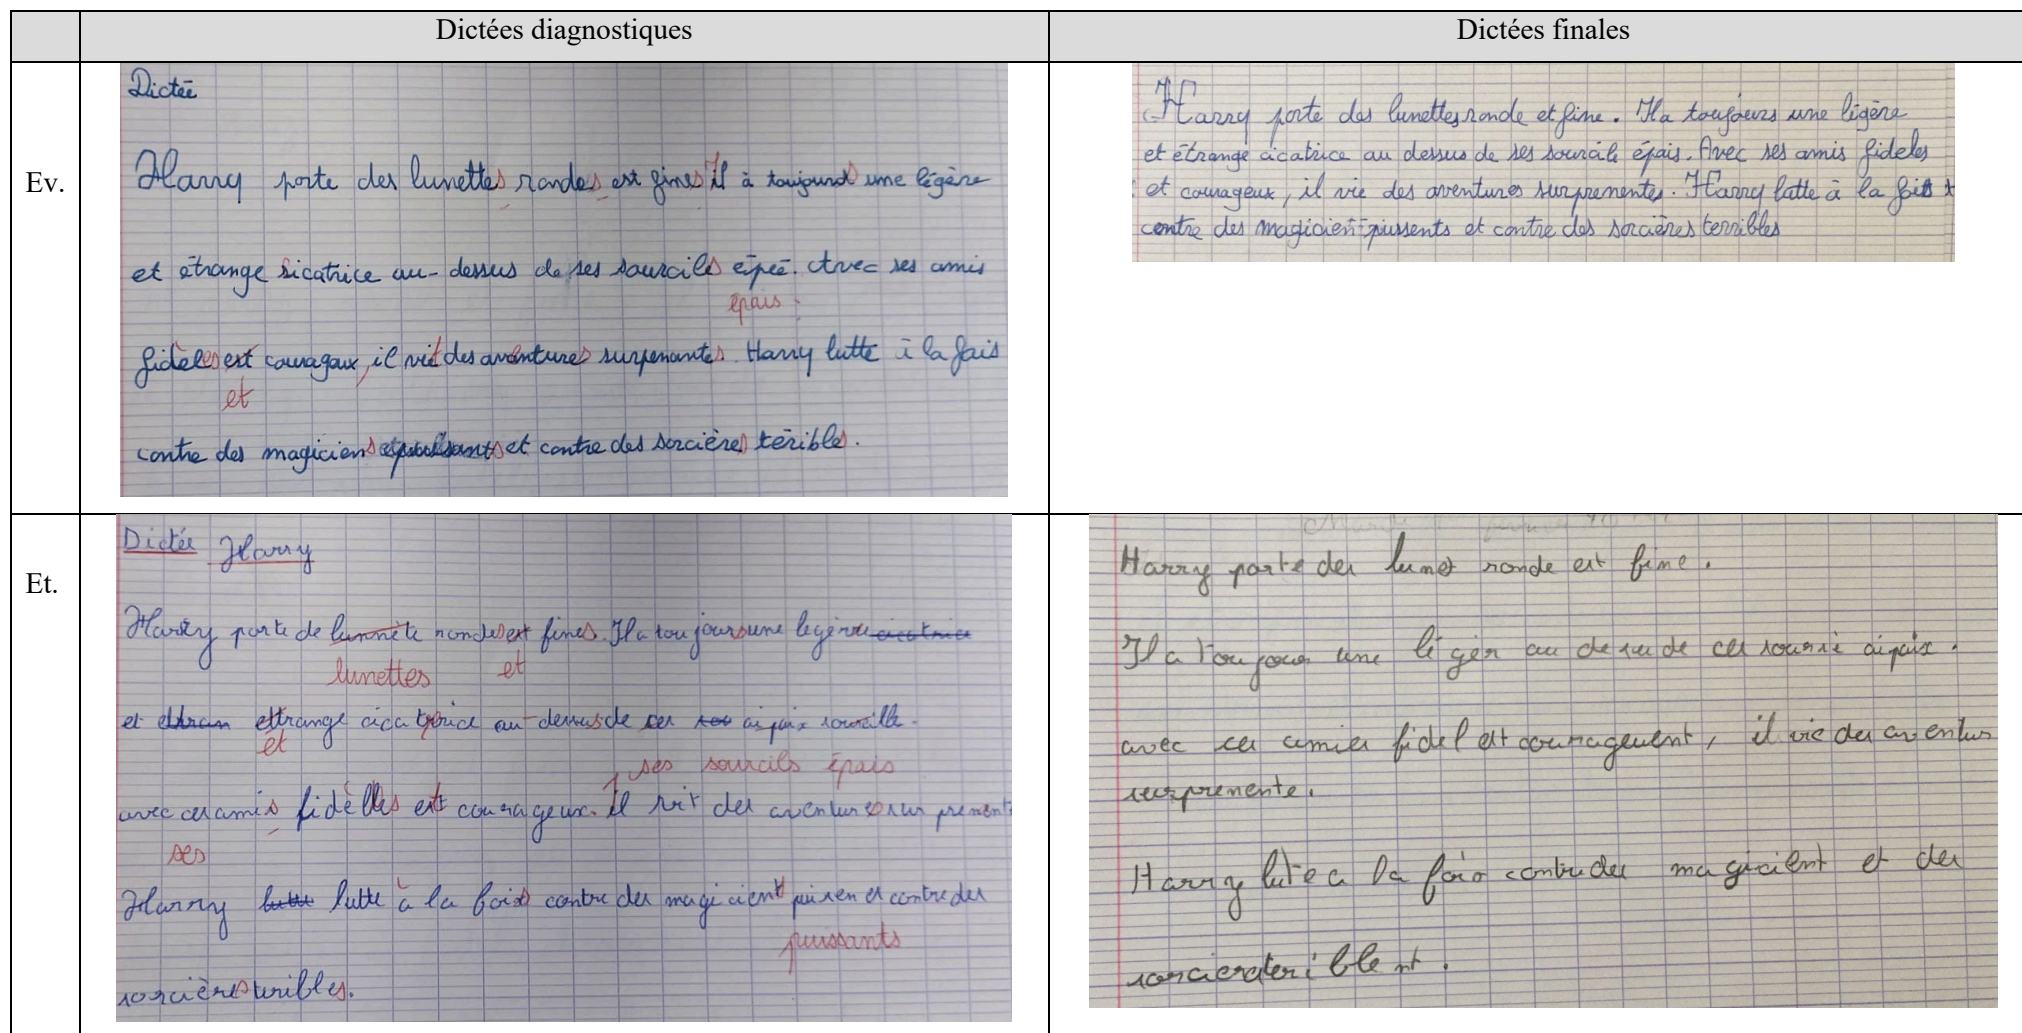 Dictées diagnostiques
Dictées finales
Ev.
Dictée
Harry porte des lunettes rondes est fines Il à toujours une légère
et étrange sicatrice au-dessus de ses sourcils épeé. Avec ses amis
épais.
fidèles est couragaux, il vit des aventures surpenantes. Harry lutte à la fois
et
contre des magiciens et contre des sorcières téribles.
Harry porte des lunettes ronde et fine. Il a toujours une légère
et étrange cicatrice au dessus de ses sourcils épais. Avec ses amis fideles
et courageux, il vie des aventures surprenentes. Harry latte à la fois
contre des magicient pussents et contre des sorcières terribles
Et.
Dictée Harry
Harry porte de lunnète rondes est fines. Il a toujours une legère cicatrice
lunettes et
et ettrange cicatrice au-dessus de ser aipaix sourcille.
et
ses sourcils épais
avec cer amis fidèlles est courageux. Il vit des aventures surprenent
ses
Harry lutte à la fois contre des magicient puisen et contre des
puissants
sorcières teribles.
Harry porte des lunet ronde est fine.
Il a toujour une légèr au desu de ces sourci aipaix.
avec ces amies fidel est couragement, il vie des aventur
surprenente.
Harry lute a la fois contre des magicient et des
sorcier teriblent.